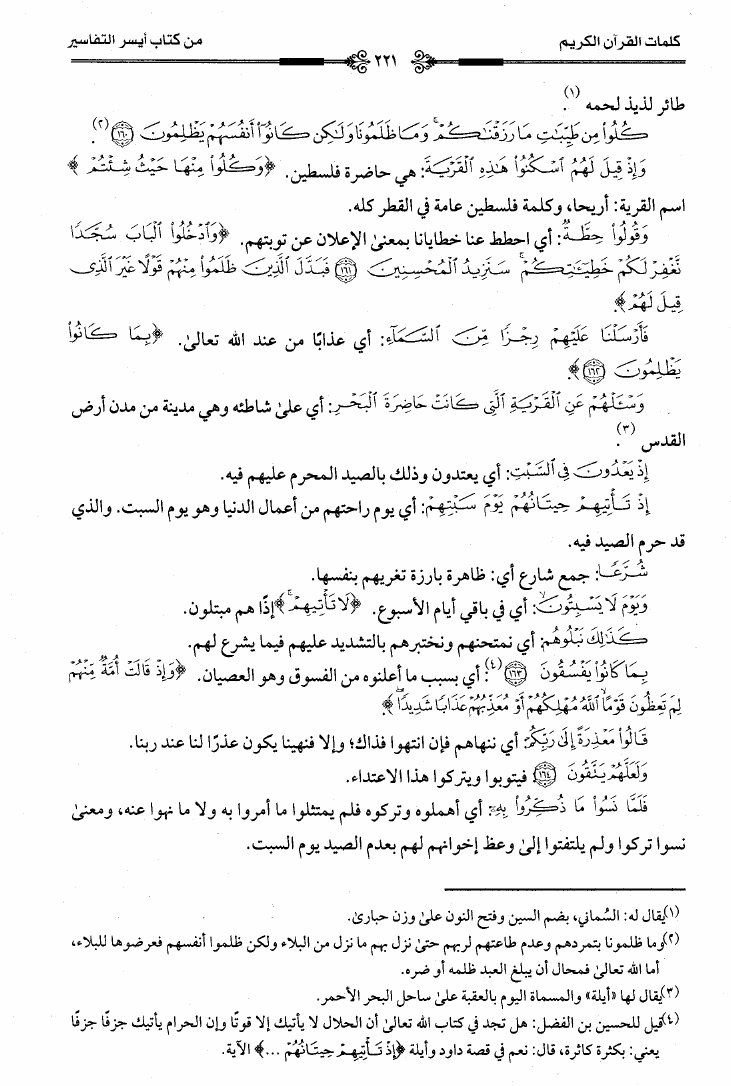 كلمات القرآن الكريم
٢٢١
من كتاب أيسر التفاسير
طائر لذيذ لحمه (١).
كُلُواْ مِن طَيِّبَٰتِ مَا رَزَقْنَٰكُمْ ۚ وَمَا ظَلَمُونَا وَلَٰكِن كَانُوٓاْ أَنفُسَهُمْ يَظْلِمُونَ ١٦٠ (٢).
وَإِذْ قِيلَ لَهُمُ ٱسْكُنُواْ هَٰذِهِ ٱلْقَرْيَةَ: هي حاضرة فلسطين. ﴿وَكُلُواْ مِنْهَا حَيْثُ شِئْتُمْ﴾
اسم القرية: أريحا، وكلمة فلسطين عامة في القطر كله.
وَقُولُواْ حِطَّةٌ: أي احطط عنا خطايانا بمعنىٰ الإعلان عن توبتهم. ﴿وَٱدْخُلُواْ ٱلْبَابَ سُجَّدًا
نَّغْفِرْ لَكُمْ خَطِيٓـَٰٔتِكُمْ ۚ سَنَزِيدُ ٱلْمُحْسِنِينَ ١٦١ فَبَدَّلَ ٱلَّذِينَ ظَلَمُواْ مِنْهُمْ قَوْلًا غَيْرَ ٱلَّذِى
قِيلَ لَهُمْ﴾.
فَأَرْسَلْنَا عَلَيْهِمْ رِجْزًا مِّنَ ٱلسَّمَآءِ: أي عذابًا من عند الله تعالىٰ. ﴿بِمَا كَانُواْ
يَظْلِمُونَ ١٦٢﴾.
وَسْـَٔلْهُمْ عَنِ ٱلْقَرْيَةِ ٱلَّتِى كَانَتْ حَاضِرَةَ ٱلْبَحْرِ: أي علىٰ شاطئه وهي مدينة من مدن أرض
القدس (٣).
إِذْ يَعْدُونَ فِى ٱلسَّبْتِ: أي يعتدون وذلك بالصيد المحرم عليهم فيه.
إِذْ تَأْتِيهِمْ حِيتَانُهُمْ يَوْمَ سَبْتِهِمْ: أي يوم راحتهم من أعمال الدنيا وهو يوم السبت. والذي
قد حرم الصيد فيه.
شُرَّعًا: جمع شارع أي: ظاهرة بارزة تغريهم بنفسها.
وَيَوْمَ لَا يَسْبِتُونَ ۙ: أي في باقي أيام الأسبوع. ﴿لَا تَأْتِيهِمْ ۚ﴾ إذًا هم مبتلون.
كَذَٰلِكَ نَبْلُوهُم: أي نمتحنهم ونختبرهم بالتشديد عليهم فيما يشرع لهم.
بِمَا كَانُواْ يَفْسُقُونَ ١٦٣ (٤): أي بسبب ما أعلنوه من الفسوق وهو العصيان. ﴿وَإِذْ قَالَتْ أُمَّةٌ مِّنْهُمْ
لِمَ تَعِظُونَ قَوْمًا ۙ ٱللَّهُ مُهْلِكُهُمْ أَوْ مُعَذِّبُهُمْ عَذَابًا شَدِيدًا ۖ﴾
قَالُواْ مَعْذِرَةً إِلَىٰ رَبِّكُمْ: أي ننهاهم فإن انتهوا فذاك؛ وإلا فنهينا يكون عذرًا لنا عند ربنا.
وَلَعَلَّهُمْ يَتَّقُونَ ١٦٤ فيتوبوا ويتركوا هذا الاعتداء.
فَلَمَّا نَسُواْ مَا ذُكِّرُواْ بِهِۦٓ: أي أهملوه وتركوه فلم يمتثلوا ما أمروا به ولا ما نهوا عنه، ومعنىٰ
نسوا تركوا ولم يلتفتوا إلىٰ وعظ إخوانهم لهم بعدم الصيد يوم السبت.
(١) يقال له: السُّماني، بضم السين وفتح النون علىٰ وزن حبارىٰ.
(٢) وما ظلمونا بتمردهم وعدم طاعتهم لربهم حتىٰ نزل بهم ما نزل من البلاء ولكن ظلموا أنفسهم فعرضوها للبلاء،
أما الله تعالىٰ فمحال أن يبلغ العبد ظلمه أو ضره.
(٣) يقال لها «أيلة» والمسماة اليوم بالعقبة علىٰ ساحل البحر الأحمر.
(٤) قيل للحسين بن الفضل: هل تجد في كتاب الله تعالىٰ أن الحلال لا يأتيك إلا قوتًا وإن الحرام يأتيك جزفًا جزفًا
يعني: بكثرة كاثرة، قال: نعم في قصة داود وأيلة ﴿إِذْ تَأْتِيهِمْ حِيتَانُهُمْ ...﴾ الآية.